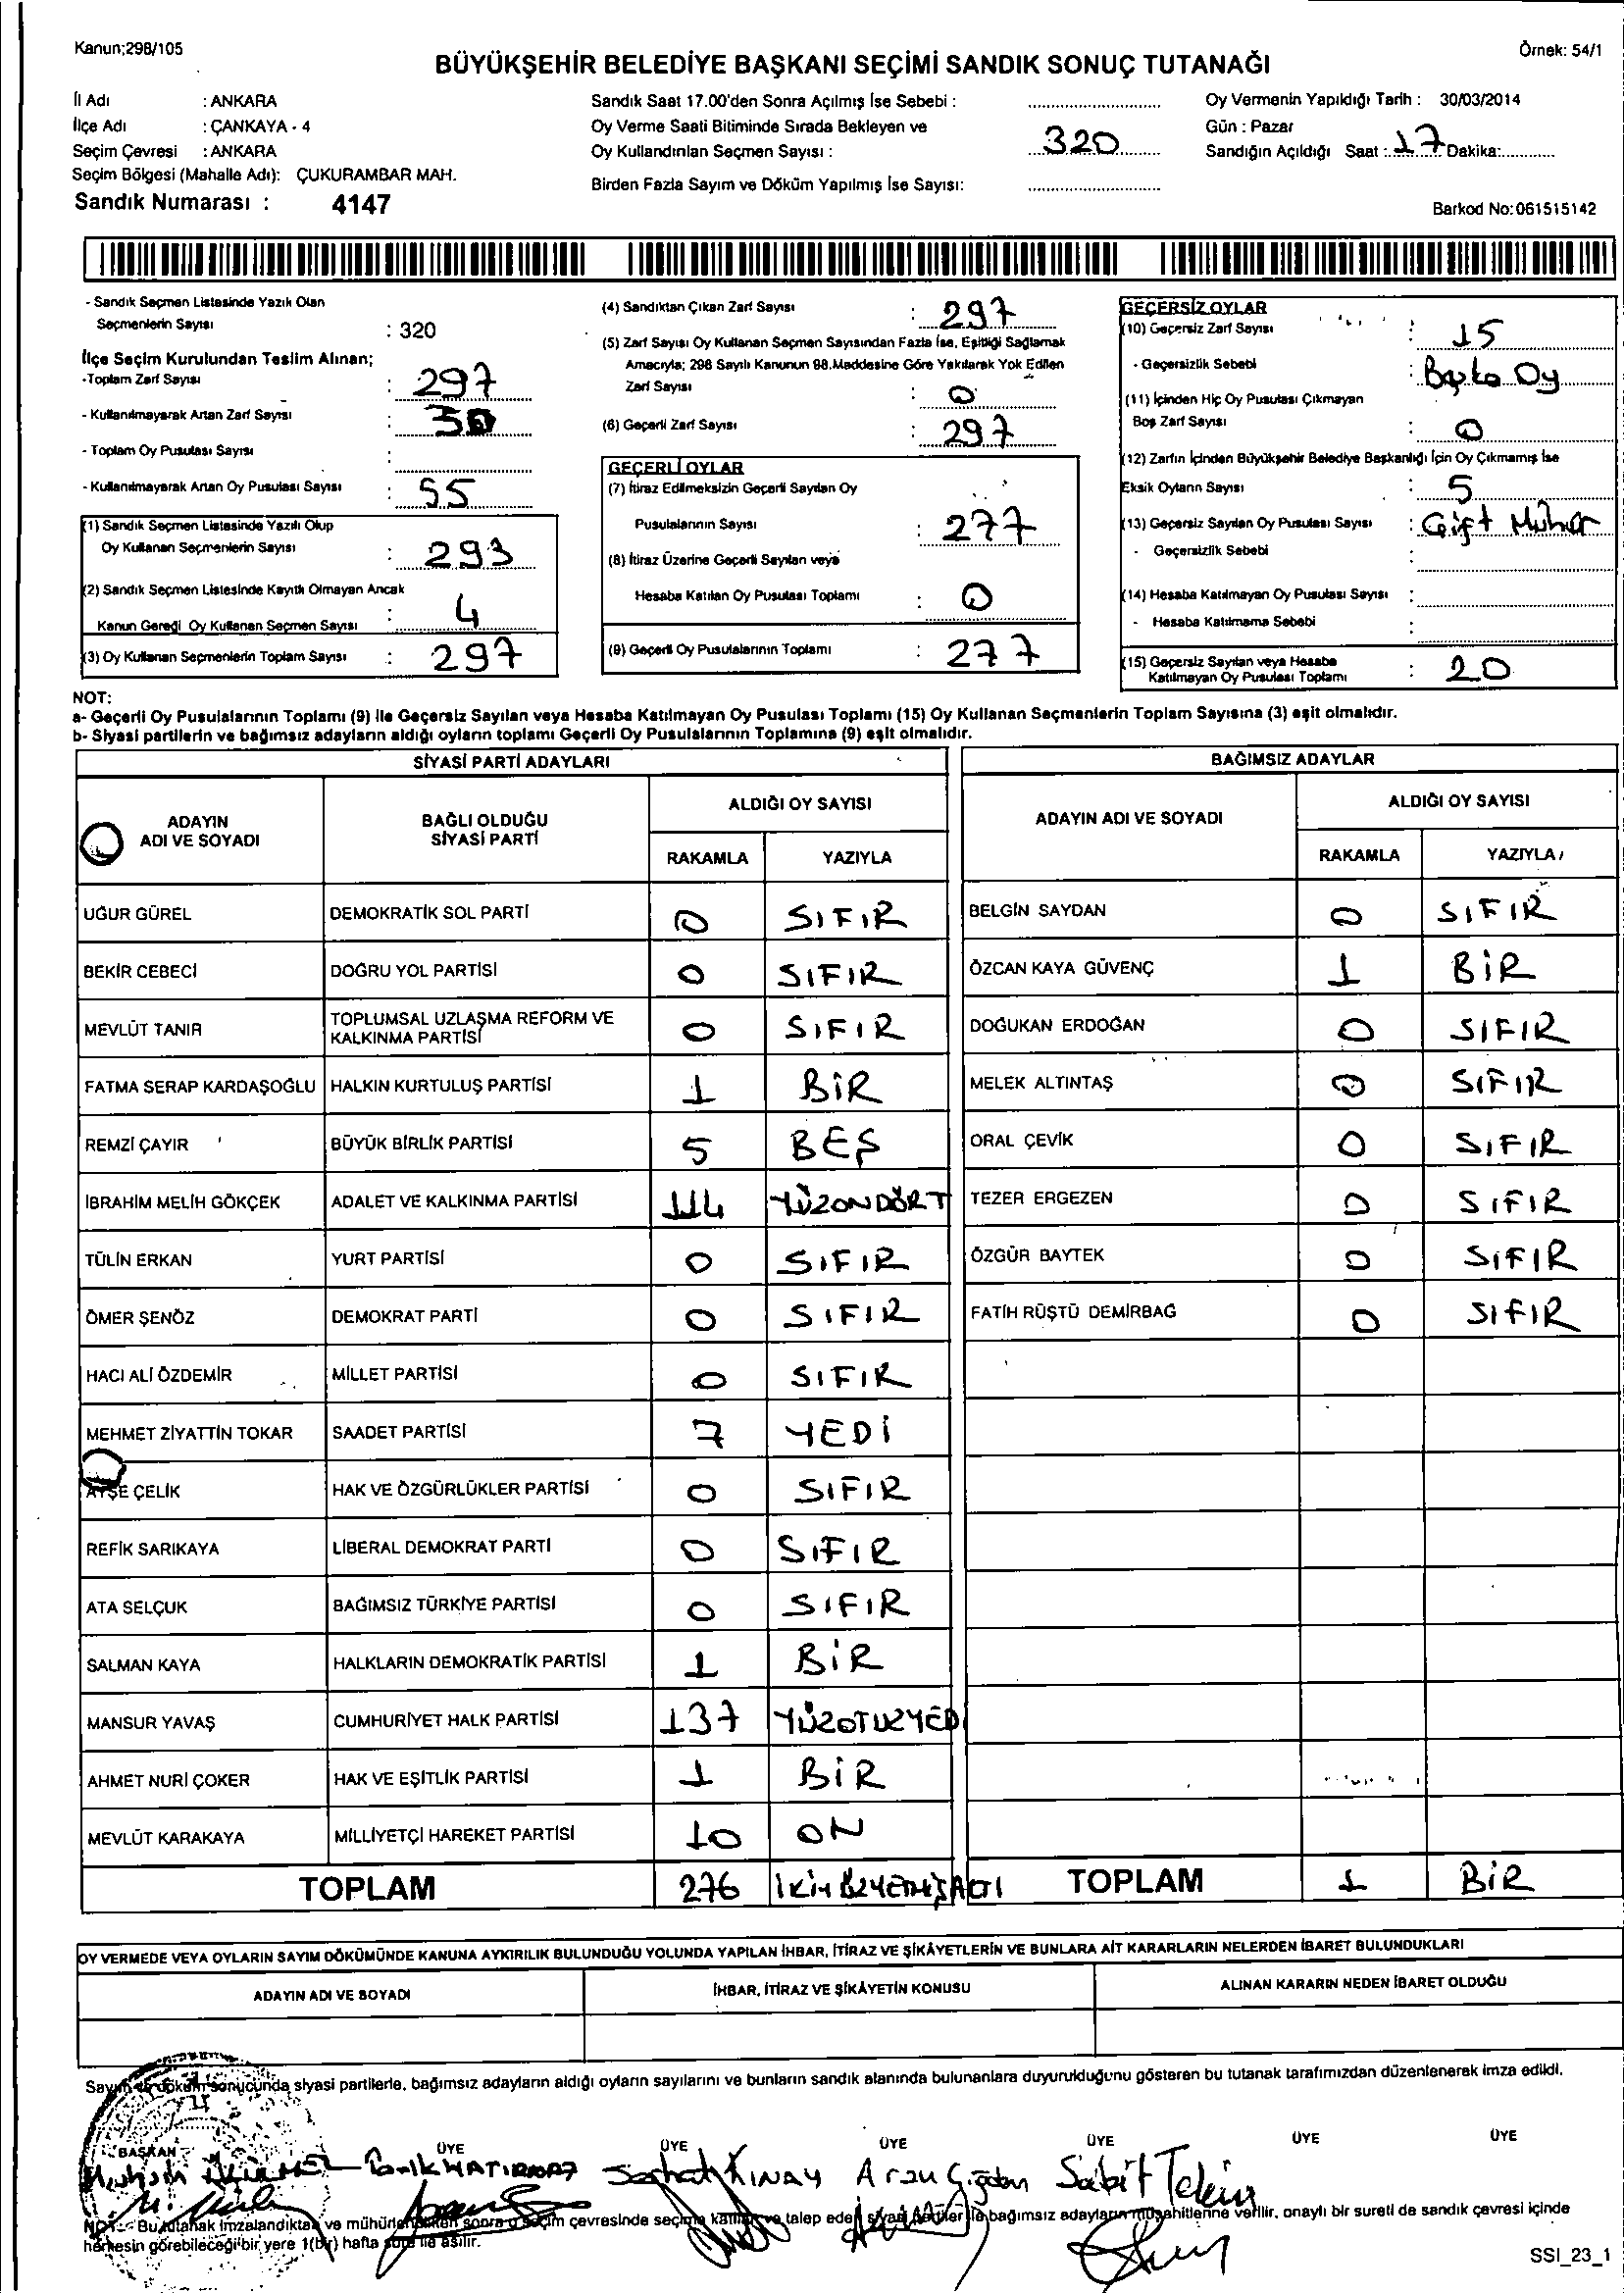 Kanun;298/105
Örnek: 54/1
BÜYÜKŞEHİR BELEDİYE BAŞKANI SEÇİMİ SANDIK SONUÇ TUTANAĞI
İl Adı : ANKARA
İlçe Adı : ÇANKAYA - 4
Seçim Çevresi : ANKARA
Seçim Bölgesi (Mahalle Adı): ÇUKURAMBAR MAH.
Sandık Numarası : 4147
Sandık Saat 17.00'den Sonra Açılmış İse Sebebi :
Oy Verme Saati Bitiminde Sırada Bekleyen ve
Oy Kullandırılan Seçmen Sayısı : 320
Birden Fazla Sayım ve Döküm Yapılmış İse Sayısı:
Oy Vermenin Yapıldığı Tarih : 30/03/2014
Gün : Pazar
Sandığın Açıldığı Saat : 17 Dakika:
Barkod No:061515142
- Sandık Seçmen Listesinde Yazılı Olan
Seçmenlerin Sayısı : 320
İlçe Seçim Kurulundan Teslim Alınan;
-Toplam Zarf Sayısı : 297
- Kullanılmayarak Artan Zarf Sayısı :
- Toplam Oy Pusulası Sayısı :
- Kullanılmayarak Artan Oy Pusulası Sayısı : 55
(1) Sandık Seçmen Listesinde Yazılı Olup
Oy Kullanan Seçmenlerin Sayısı : 293
(2) Sandık Seçmen Listesinde Kayıtlı Olmayan Ancak
Kanun Gereği Oy Kullanan Seçmen Sayısı : 4
(3) Oy Kullanan Seçmenlerin Toplam Sayısı : 297
(4) Sandıktan Çıkan Zarf Sayısı : 297
(5) Zarf Sayısı Oy Kullanan Seçmen Sayısından Fazla İse, Eşitliği Sağlamak
Amacıyla; 298 Sayılı Kanunun 98.Maddesine Göre Yakılarak Yok Edilen
Zarf Sayısı : 0
(6) Geçerli Zarf Sayısı : 297
GEÇERLİ OYLAR
(7) İtiraz Edilmeksizin Geçerli Sayılan Oy
Pusulalarının Sayısı : 277
(8) İtiraz Üzerine Geçerli Sayılan veya
Hesaba Katılan Oy Pusulası Toplamı : 0
(9) Geçerli Oy Pusulalarının Toplamı : 277
GEÇERSİZ OYLAR
(10) Geçersiz Zarf Sayısı : 15
- Geçersizlik Sebebi : Başka Oy
(11) İçinden Hiç Oy Pusulası Çıkmayan
Boş Zarf Sayısı : 0
(12) Zarfın İçinden Büyükşehir Belediye Başkanlığı İçin Oy Çıkmamış İse
Eksik Oyların Sayısı : 5
(13) Geçersiz Sayılan Oy Pusulası Sayısı : Çift Mühür
- Geçersizlik Sebebi :
(14) Hesaba Katılmayan Oy Pusulası Sayısı :
- Hesaba Katılmama Sebebi :
(15) Geçersiz Sayılan veya Hesaba
Katılmayan Oy Pusulası Toplamı : 20
NOT:
a- Geçerli Oy Pusulalarının Toplamı (9) ile Geçersiz Sayılan veya Hesaba Katılmayan Oy Pusulası Toplamı (15) Oy Kullanan Seçmenlerin Toplam Sayısına (3) eşit olmalıdır.
b- Siyasi partilerin ve bağımsız adayların aldığı oyların toplamı Geçerli Oy Pusulalarının Toplamına (9) eşit olmalıdır.
SİYASİ PARTİ ADAYLARI
ADAYIN ADI VE SOYADI
BAĞLI OLDUĞU SİYASİ PARTİ
ALDIĞI OY SAYISI
RAKAMLA YAZIYLA
UĞUR GÜREL DEMOKRATİK SOL PARTİ 0 SIFIR
BEKİR CEBECİ DOĞRU YOL PARTİSİ 0 SIFIR
MEVLÜT TANIR TOPLUMSAL UZLAŞMA REFORM VE KALKINMA PARTİSİ 0 SIFIR
FATMA SERAP KARDAŞOĞLU HALKIN KURTULUŞ PARTİSİ 1 BİR
REMZİ ÇAYIR BÜYÜK BİRLİK PARTİSİ 5 BEŞ
İBRAHİM MELİH GÖKÇEK ADALET VE KALKINMA PARTİSİ 114 YÜZONDÖRT
TÜLİN ERKAN YURT PARTİSİ 0 SIFIR
ÖMER ŞENÖZ DEMOKRAT PARTİ 0 SIFIR
HACI ALİ ÖZDEMİR MİLLET PARTİSİ 0 SIFIR
MEHMET ZİYATTİN TOKAR SAADET PARTİSİ 7 YEDİ
AYŞE ÇELİK HAK VE ÖZGÜRLÜKLER PARTİSİ 0 SIFIR
REFİK SARIKAYA LİBERAL DEMOKRAT PARTİ 0 SIFIR
ATA SELÇUK BAĞIMSIZ TÜRKİYE PARTİSİ 0 SIFIR
SALMAN KAYA HALKLARIN DEMOKRATİK PARTİSİ 1 BİR
MANSUR YAVAŞ CUMHURİYET HALK PARTİSİ 137 YÜZOTUZYEDİ
AHMET NURİ ÇOKER HAK VE EŞİTLİK PARTİSİ 1 BİR
MEVLÜT KARAKAYA MİLLİYETÇİ HAREKET PARTİSİ 10 ON
TOPLAM 276
BAĞIMSIZ ADAYLAR
ADAYIN ADI VE SOYADI
ALDIĞI OY SAYISI
RAKAMLA YAZIYLA
BELGİN SAYDAN 0 SIFIR
ÖZCAN KAYA GÜVENÇ 1 BİR
DOĞUKAN ERDOĞAN 0 SIFIR
MELEK ALTINTAŞ 0 SIFIR
ORAL ÇEVİK 0 SIFIR
TEZER ERGEZEN 0 SIFIR
ÖZGÜR BAYTEK 0 SIFIR
FATİH RÜŞTÜ DEMİRBAĞ 0 SIFIR
TOPLAM 1 BİR
OY VERMEDE VEYA OYLARIN SAYIM DÖKÜMÜNDE KANUNA AYKIRILIK BULUNDUĞU YOLUNDA YAPILAN İHBAR, İTİRAZ VE ŞİKÂYETLERİN VE BUNLARA AİT KARARLARIN NELERDEN İBARET BULUNDUKLARI
ADAYIN ADI VE SOYADI
İHBAR, İTİRAZ VE ŞİKÂYETİN KONUSU
ALINAN KARARIN NEDEN İBARET OLDUĞU
Sayım ve döküm sonucunda siyasi partilerle, bağımsız adayların aldığı oyların sayılarını ve bunların sandık alanında bulunanlara duyurulduğunu gösteren bu tutanak tarafımızdan düzenlenerek imza edildi.
BAŞKAN ÜYE ÜYE ÜYE ÜYE ÜYE ÜYE
Serhat KINAY Arzu Çiğdem Sabit Tekin
NOT:- Bu tutanak imzalandıktan ve mühürlendikten sonra o seçim çevresinde seçime katılan ve talep eden siyasi partiler ile bağımsız adayların müşahitlerine verilir, onaylı bir sureti de sandık çevresi içinde
herkesin görebileceği bir yere 1(bir) hafta süre ile asılır.
SSI_23_1